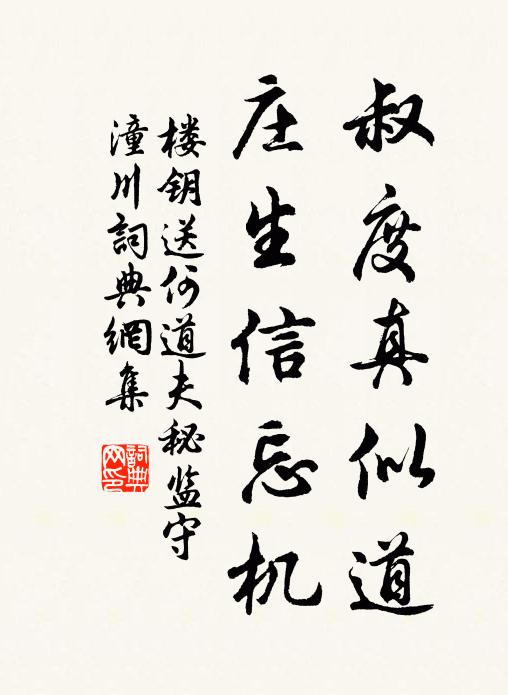 叔度真似道
庄生信忘机
楼钥送何道夫秘监守
潼川詞典網集
詞典网印